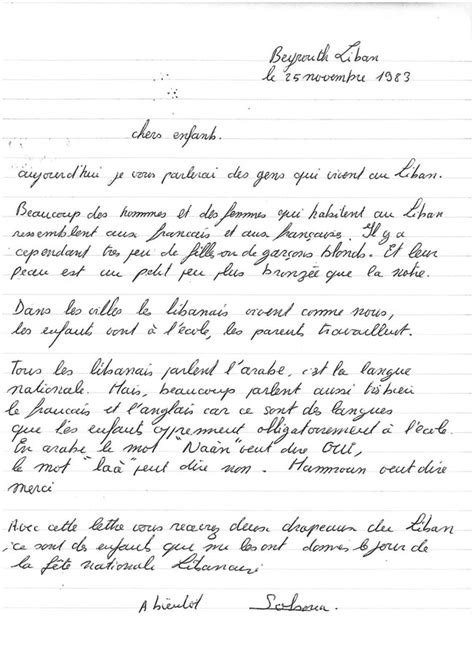 Beyrouth Liban
le 25 novembre 1983
chers enfants.
aujourd'hui je vous parlerai des gens qui vivent au Liban.
Beaucoup des hommes et des femmes qui habitent au Liban
ressemblent aux francais et aux françaises. Il y a
cependant très peu de fille ou de garçons blonds. Et leur
peau est un petit peu plus bronzée que la notre.
Dans les villes les libanais vivent comme nous,
les enfants vont à l'école, les parents travaillent.
Tous les libanais parlent l'arabe, c'est la langue
nationale. Mais, beaucoup parlent aussi très bien
le francais et l'anglais car ce sont des langues
que les enfants apprennent obligatoirement à l'école.
En arabe le mot "Naàn" veut dire OUI,
le mot "laà" veut dire non. Hamroun veut dire
merci
Avec cette lettre vous recevrez deux drapeaux du Liban
ce sont des enfants que me les ont donnés le jour de
la fête nationale Libanaise
A bientot